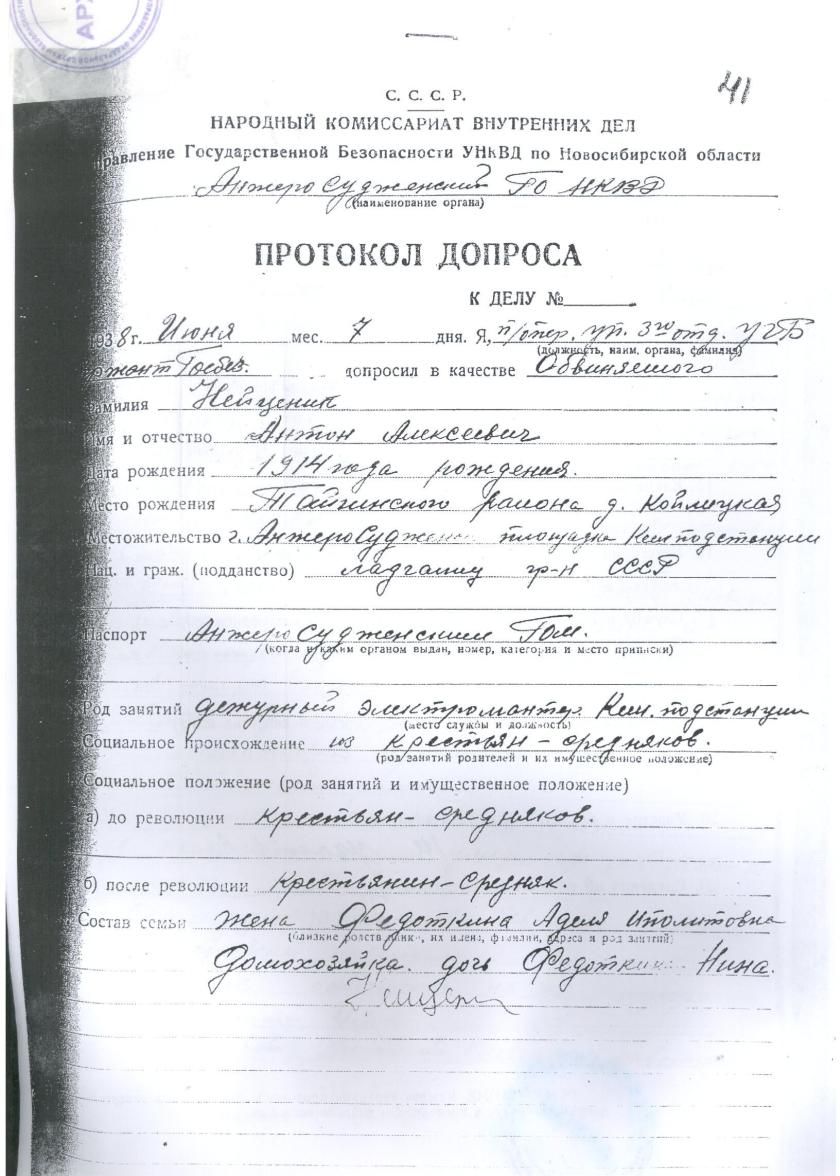 АРХ
41
С. С. С. Р.
НАРОДНЫЙ КОМИССАРИАТ ВНУТРЕННИХ ДЕЛ
правление Государственной Безопасности УНКВД по Новосибирской области
Анжеро Судженский ГО НКВД
(наименование органа)
ПРОТОКОЛ ДОПРОСА
К ДЕЛУ №
1938 г. Июня мес. 7 дня. Я, п/опер. уп. 3го отд. УГБ
(должность, наим. органа, фамилия)
Госбез. допросил в качестве Обвиняемого
фамилия Нейценик
Имя и отчество Антон Алексеевич
Дата рождения 1914 года рождения.
Место рождения Тайгинского района д.
Местожительство г. Анжеро Суджен площадка подстанции
Нац. и граж. (подданство) гр-н СССР
Паспорт Анжеро Судженским Гом.
(когда и каким органом выдан, номер, категория и место приписки)
Род занятий дежурный электромантер подстанции
(место службы и должность)
Социальное происхождение из крестьян - средняков.
(род занятий родителей и их имущественное положение)
Социальное положение (род занятий и имущественное положение)
а) до революции крестьян - средняков.
б) после революции Крестьянин - Средняк.
Состав семьи Жена Федоткина Аделя Иполитовна
(близкие родственники, их имена, фамилии, адреса и род занятий)
Домохозяйка. дочь Федоткина Нина.